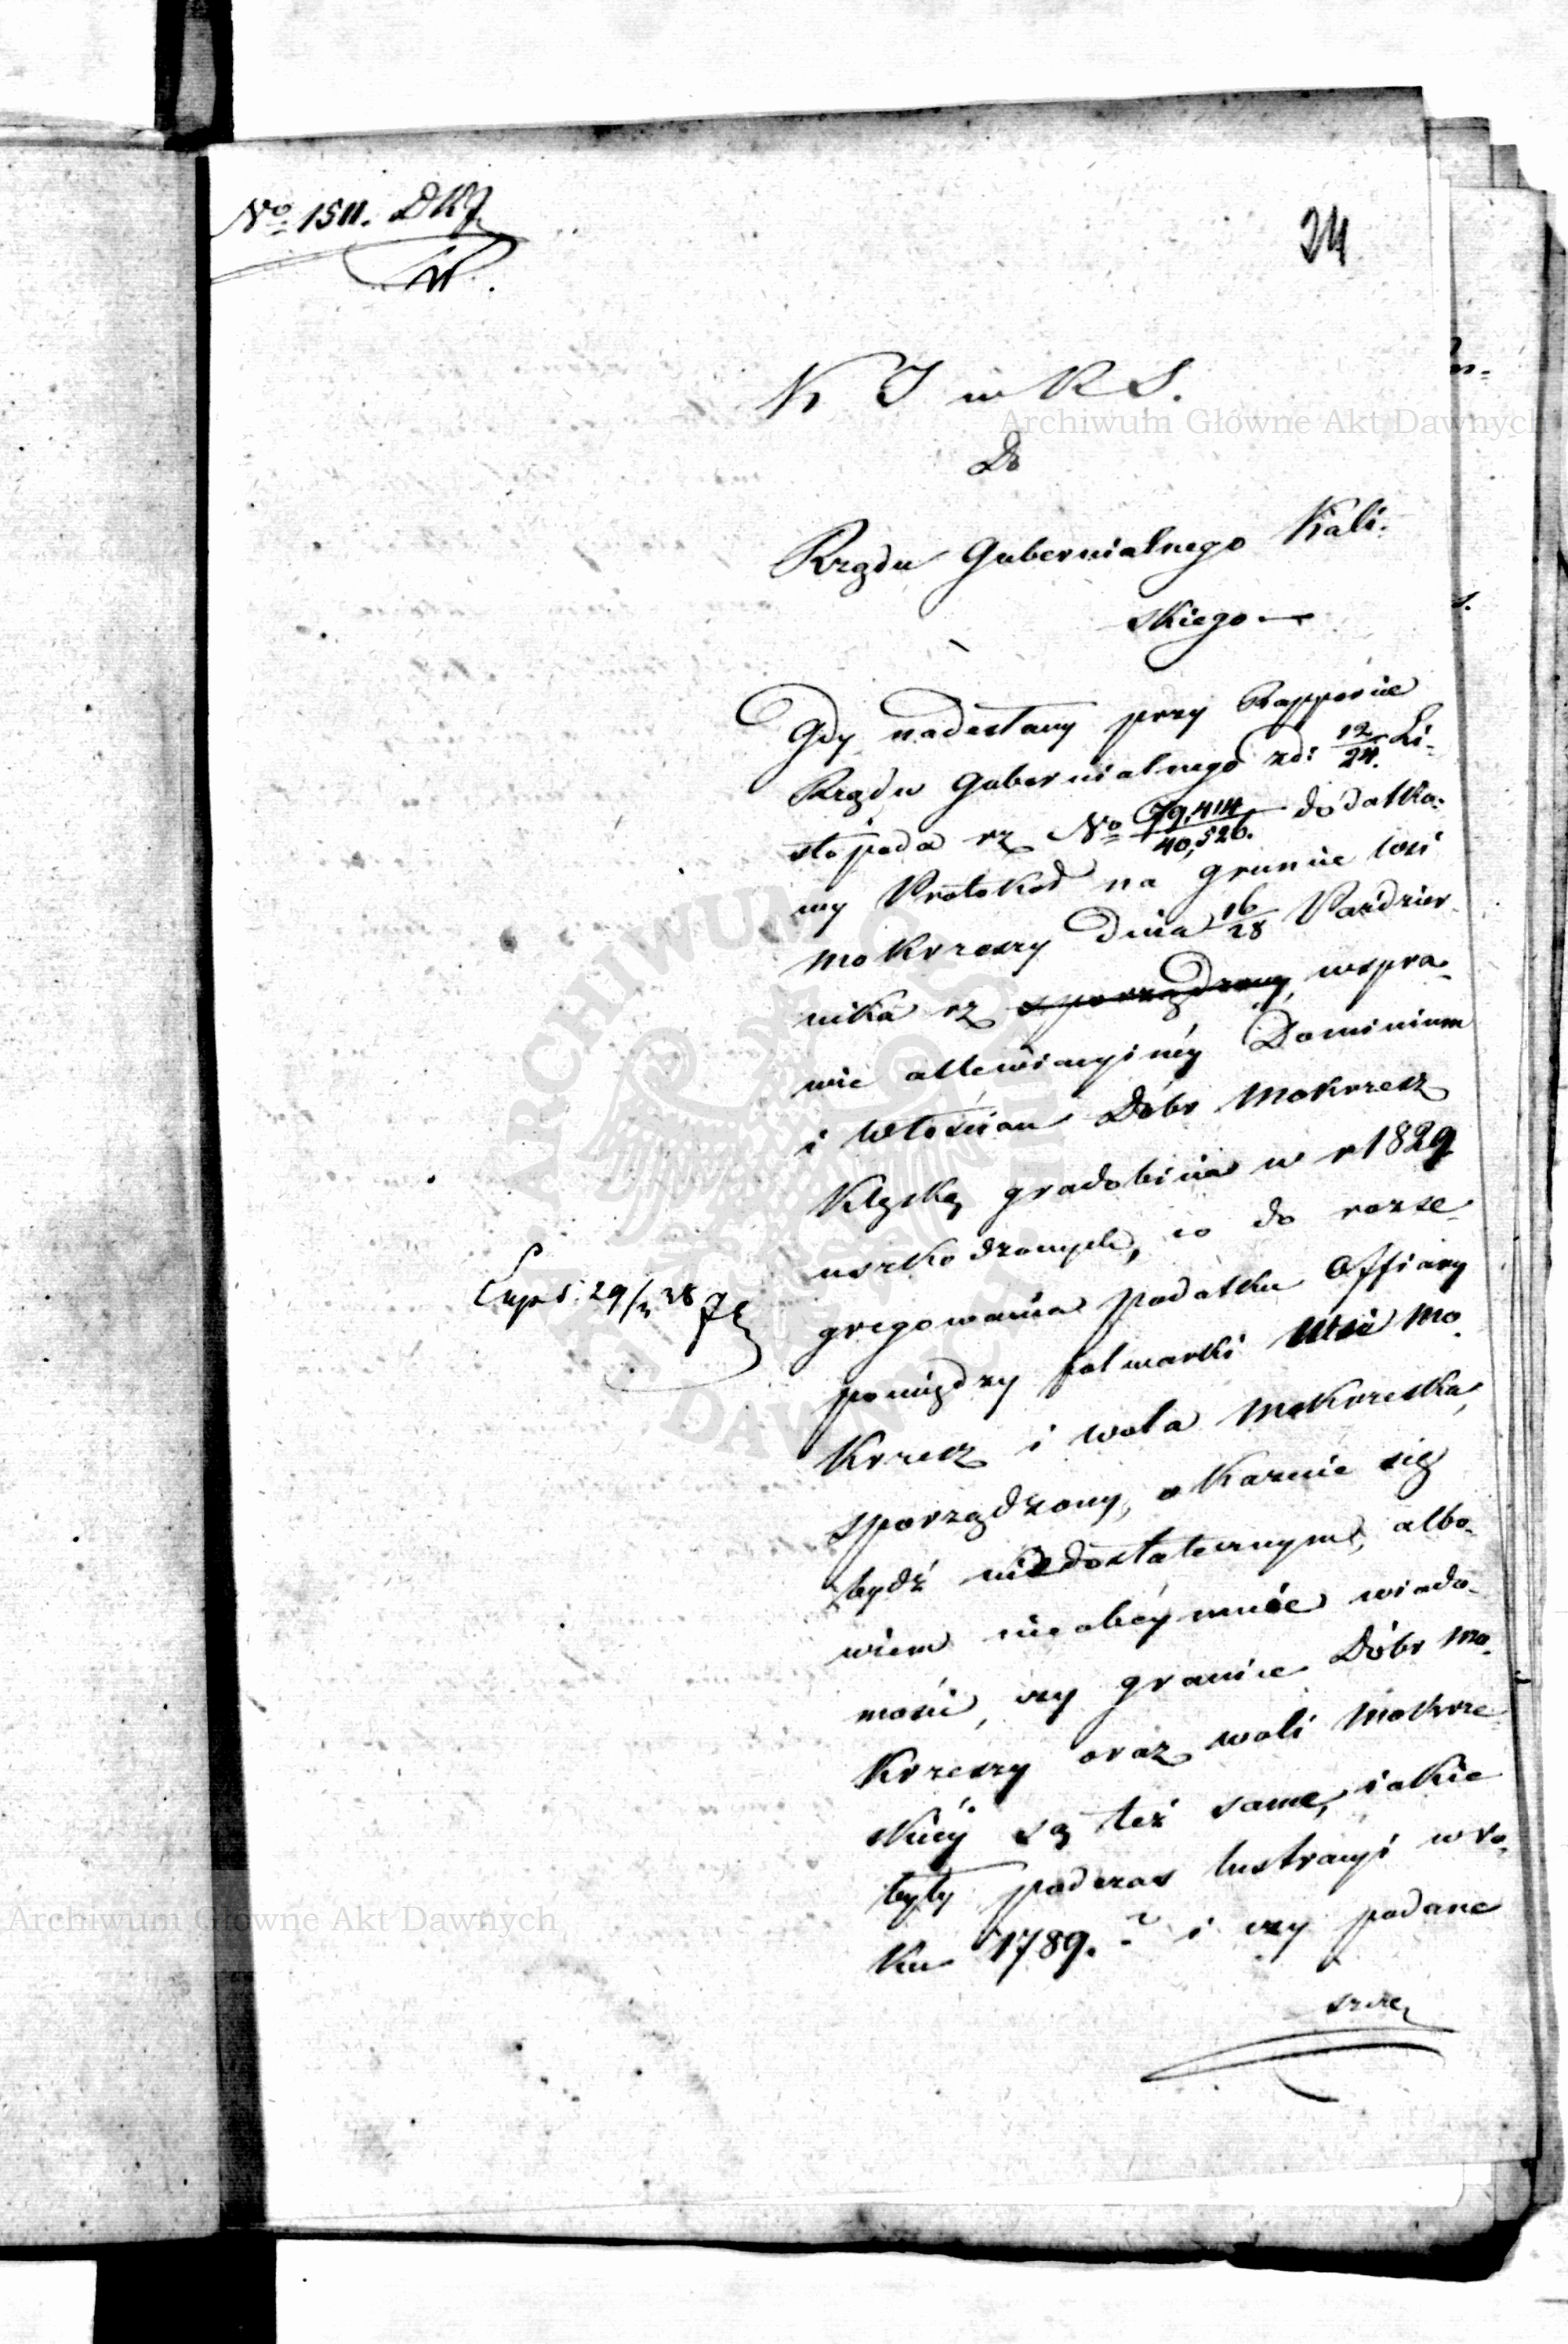 No 1511. DKJ
24
K J w K S.
Do
Rządu Gubernialnego Kali-
skiego —
Gdy nadesłany przy Rapporcie
Rządu Gubernialnego z d: 12/24. Li-
stopada rz No 79,414/40,526. dodatko-
wy Protokoł na gruncie wsi
Mokrzeszy dnia 16/28 Paździer-
nika rz sporządzony, wspra-
wie allewiacyinéy Dominium
i Włościan Dóbr Mokrzesz
klęską gradobicia w r 1829
uszkodzonych, co do rozse-
gregowania podatku Offiary
pomiędzy folwarki Wsi Mo-
krzesz i Wola Mokrzeska,
sporządzony, okazuie się
bydź niedostatecznym, albo-
wiem nieobéymuie wiado-
mości, czy granice Dóbr Mo-
krzeszy oraz Woli Mokrze-
skiéy są też same, iakie
były podczas lustracyi w ro-
ku 1789. ? i czy podane
Exped: 29/ 38
Archiwum Główne Akt Dawnych
Archiwum Główne Akt Dawnych